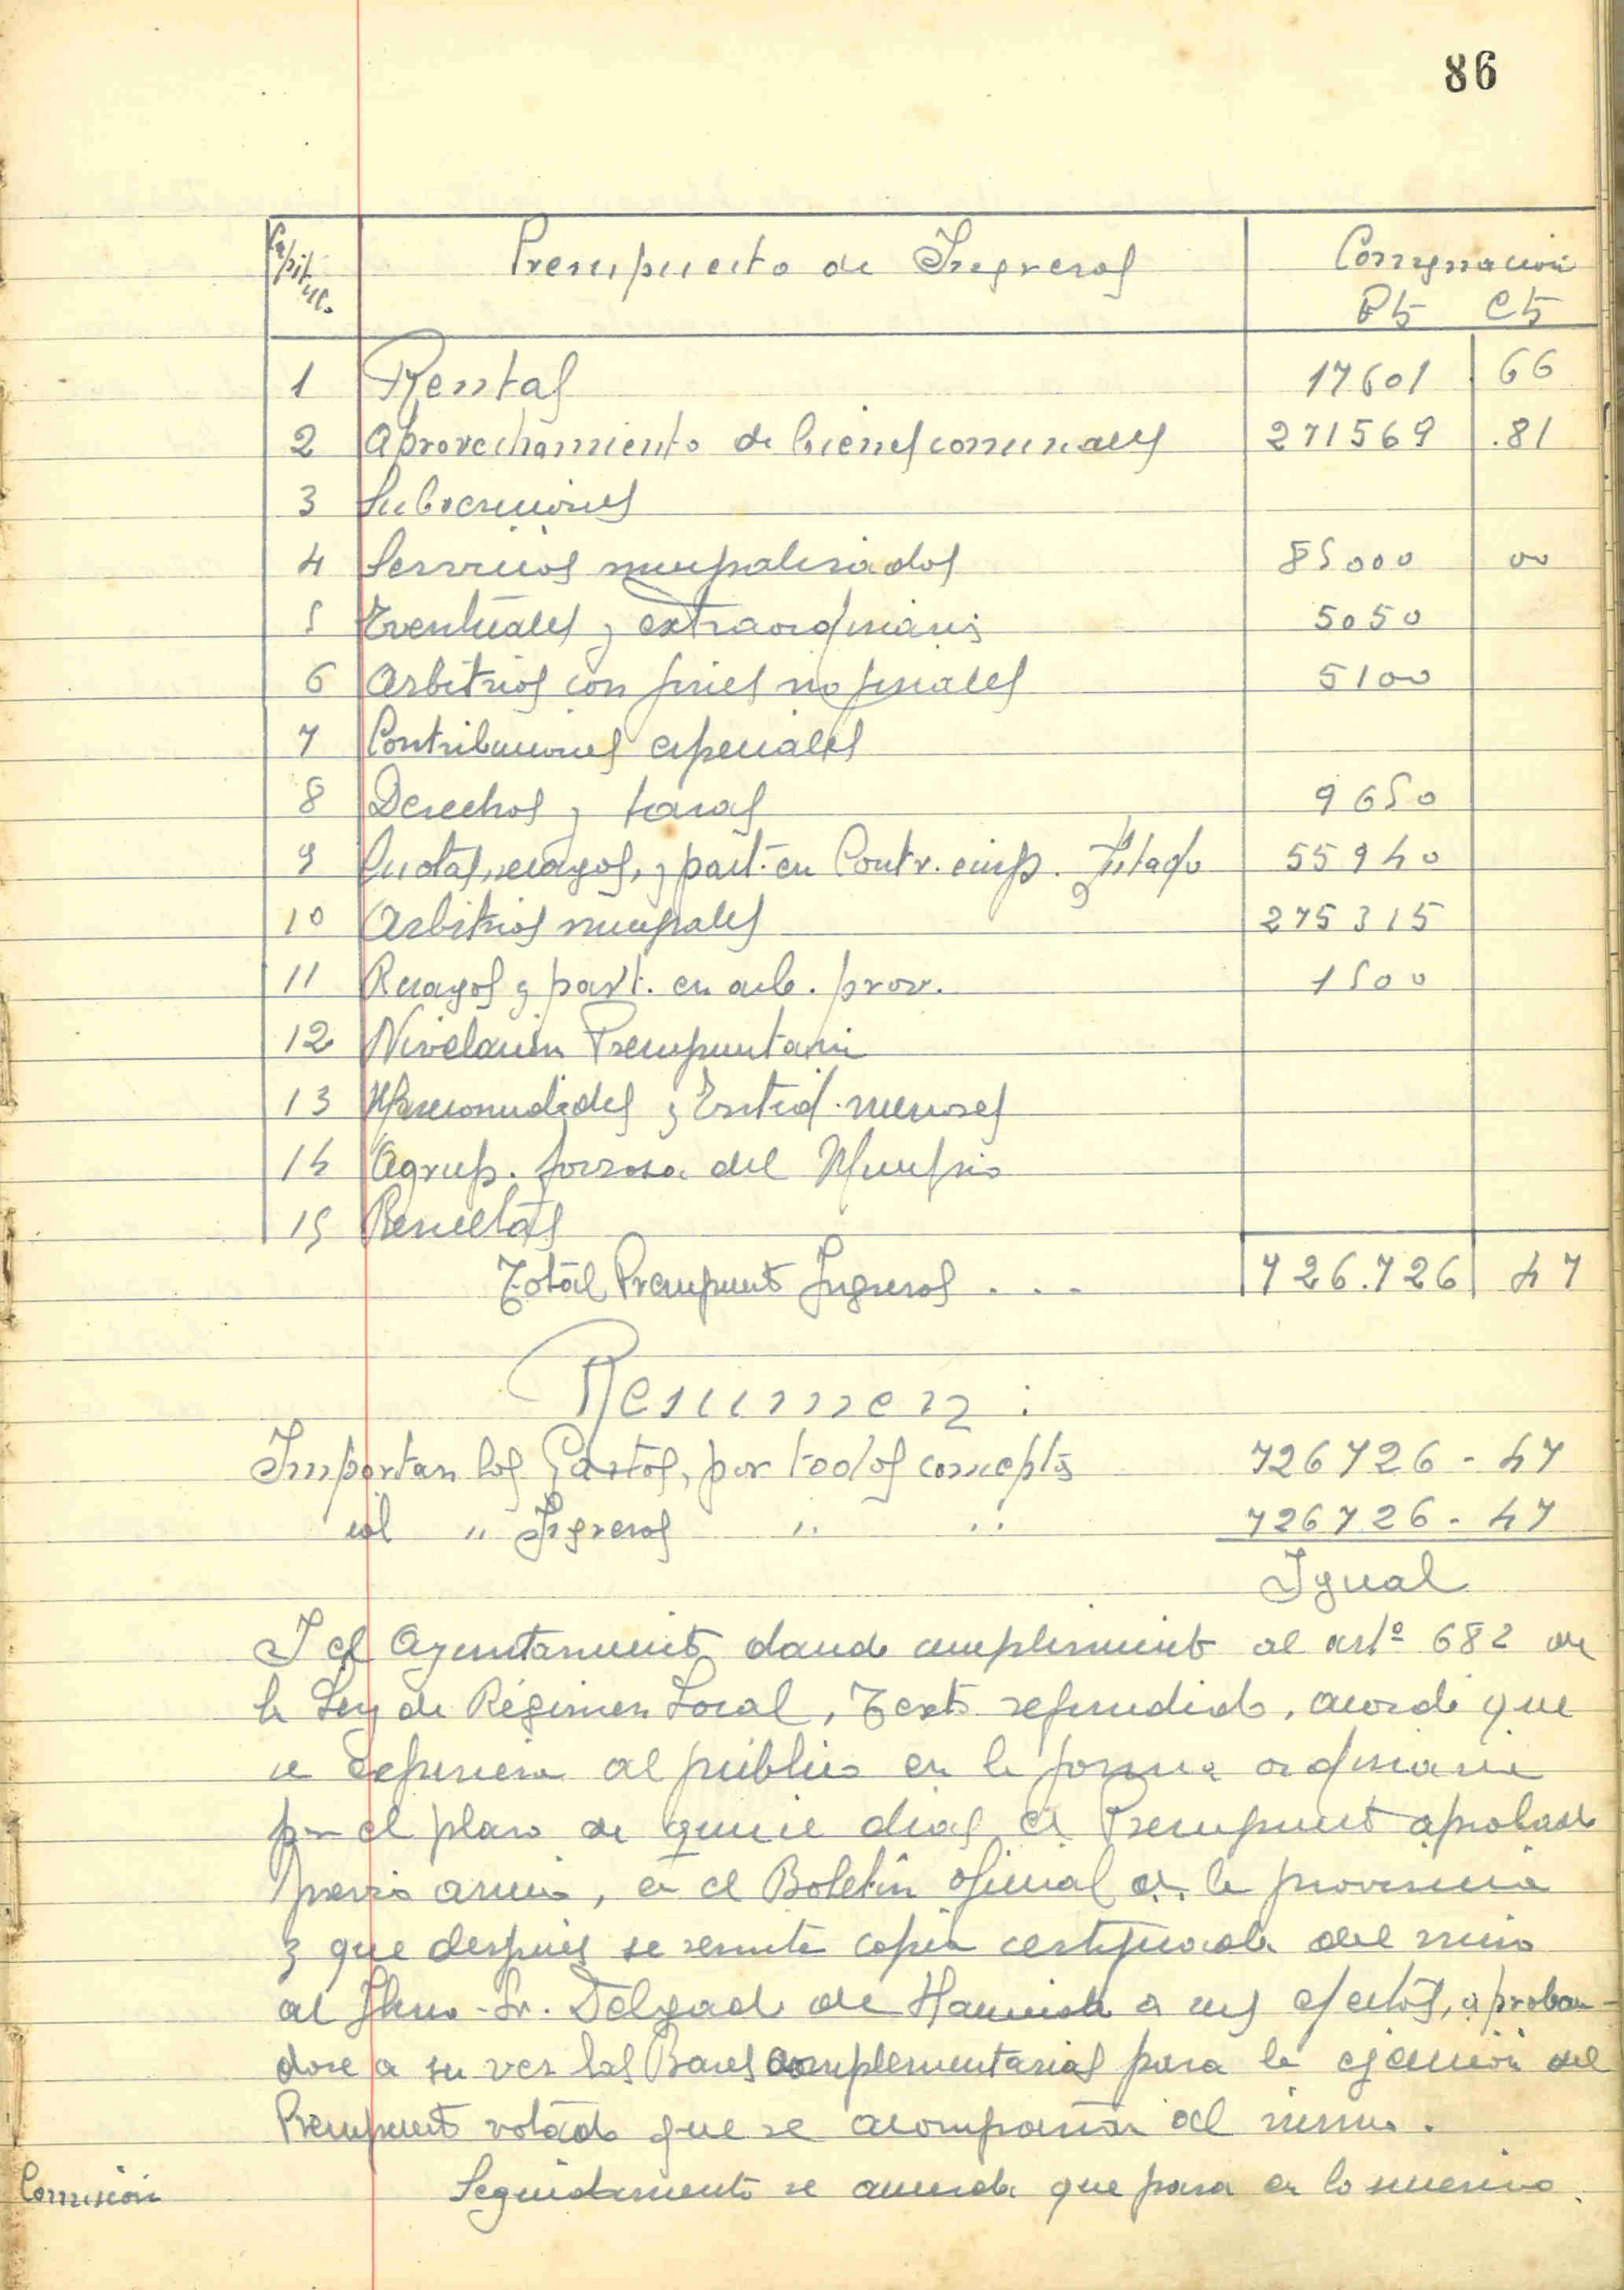 86
Capítulo Presupuesto de Ingresos Consignación
Pts Cts
1 Rentas 17601 66
2 Aprovechamiento de bienes comunales 271569 .81
3 Subvenciones
4 Servicios munpalizados 85000 00
5 Eventuales y extraordinarios 5050
6 Arbitrios con fines no fiscales 5100
7 Contribuciones especiales
8 Derechos y tasas 9650
9 Cuotas, recargos, y part. en Contr. e imp. Estado 55940
10 Arbitrios munpales 275315
11 Recargos y part. en arb. prov. 1500
12 Nivelación Presupuestaria
13 Mancomunidades y Entid. menores
14 Agrup. forzosa del Munpio
15 Resultas
Total Presupuesto Ingresos . . . 726.726 47
Resumen :
Importan los Gastos, por todos conceptos 726726 - 47
id " Ingresos " " 726726 - 47
Igual
Y el Ayuntamiento dando cumplimiento al artº 682 de
la Ley de Régimen Local, Texto refundido, acordó que
se expusiera al público en la forma ordinaria
por el plazo de quince días el Presupuesto aprobado
previo anuncio, en el Boletín oficial de la provincia
y que después se remita copia certificada del mismo
al Ilmo. Sr. Delegado de Hacienda a sus efectos, aproban-
dose a su vez las Bases complementarias para la ejecución del
Presupuesto votado que se acompañan al mismo.
Comisión Seguidamente se acuerda que para en lo sucesivo